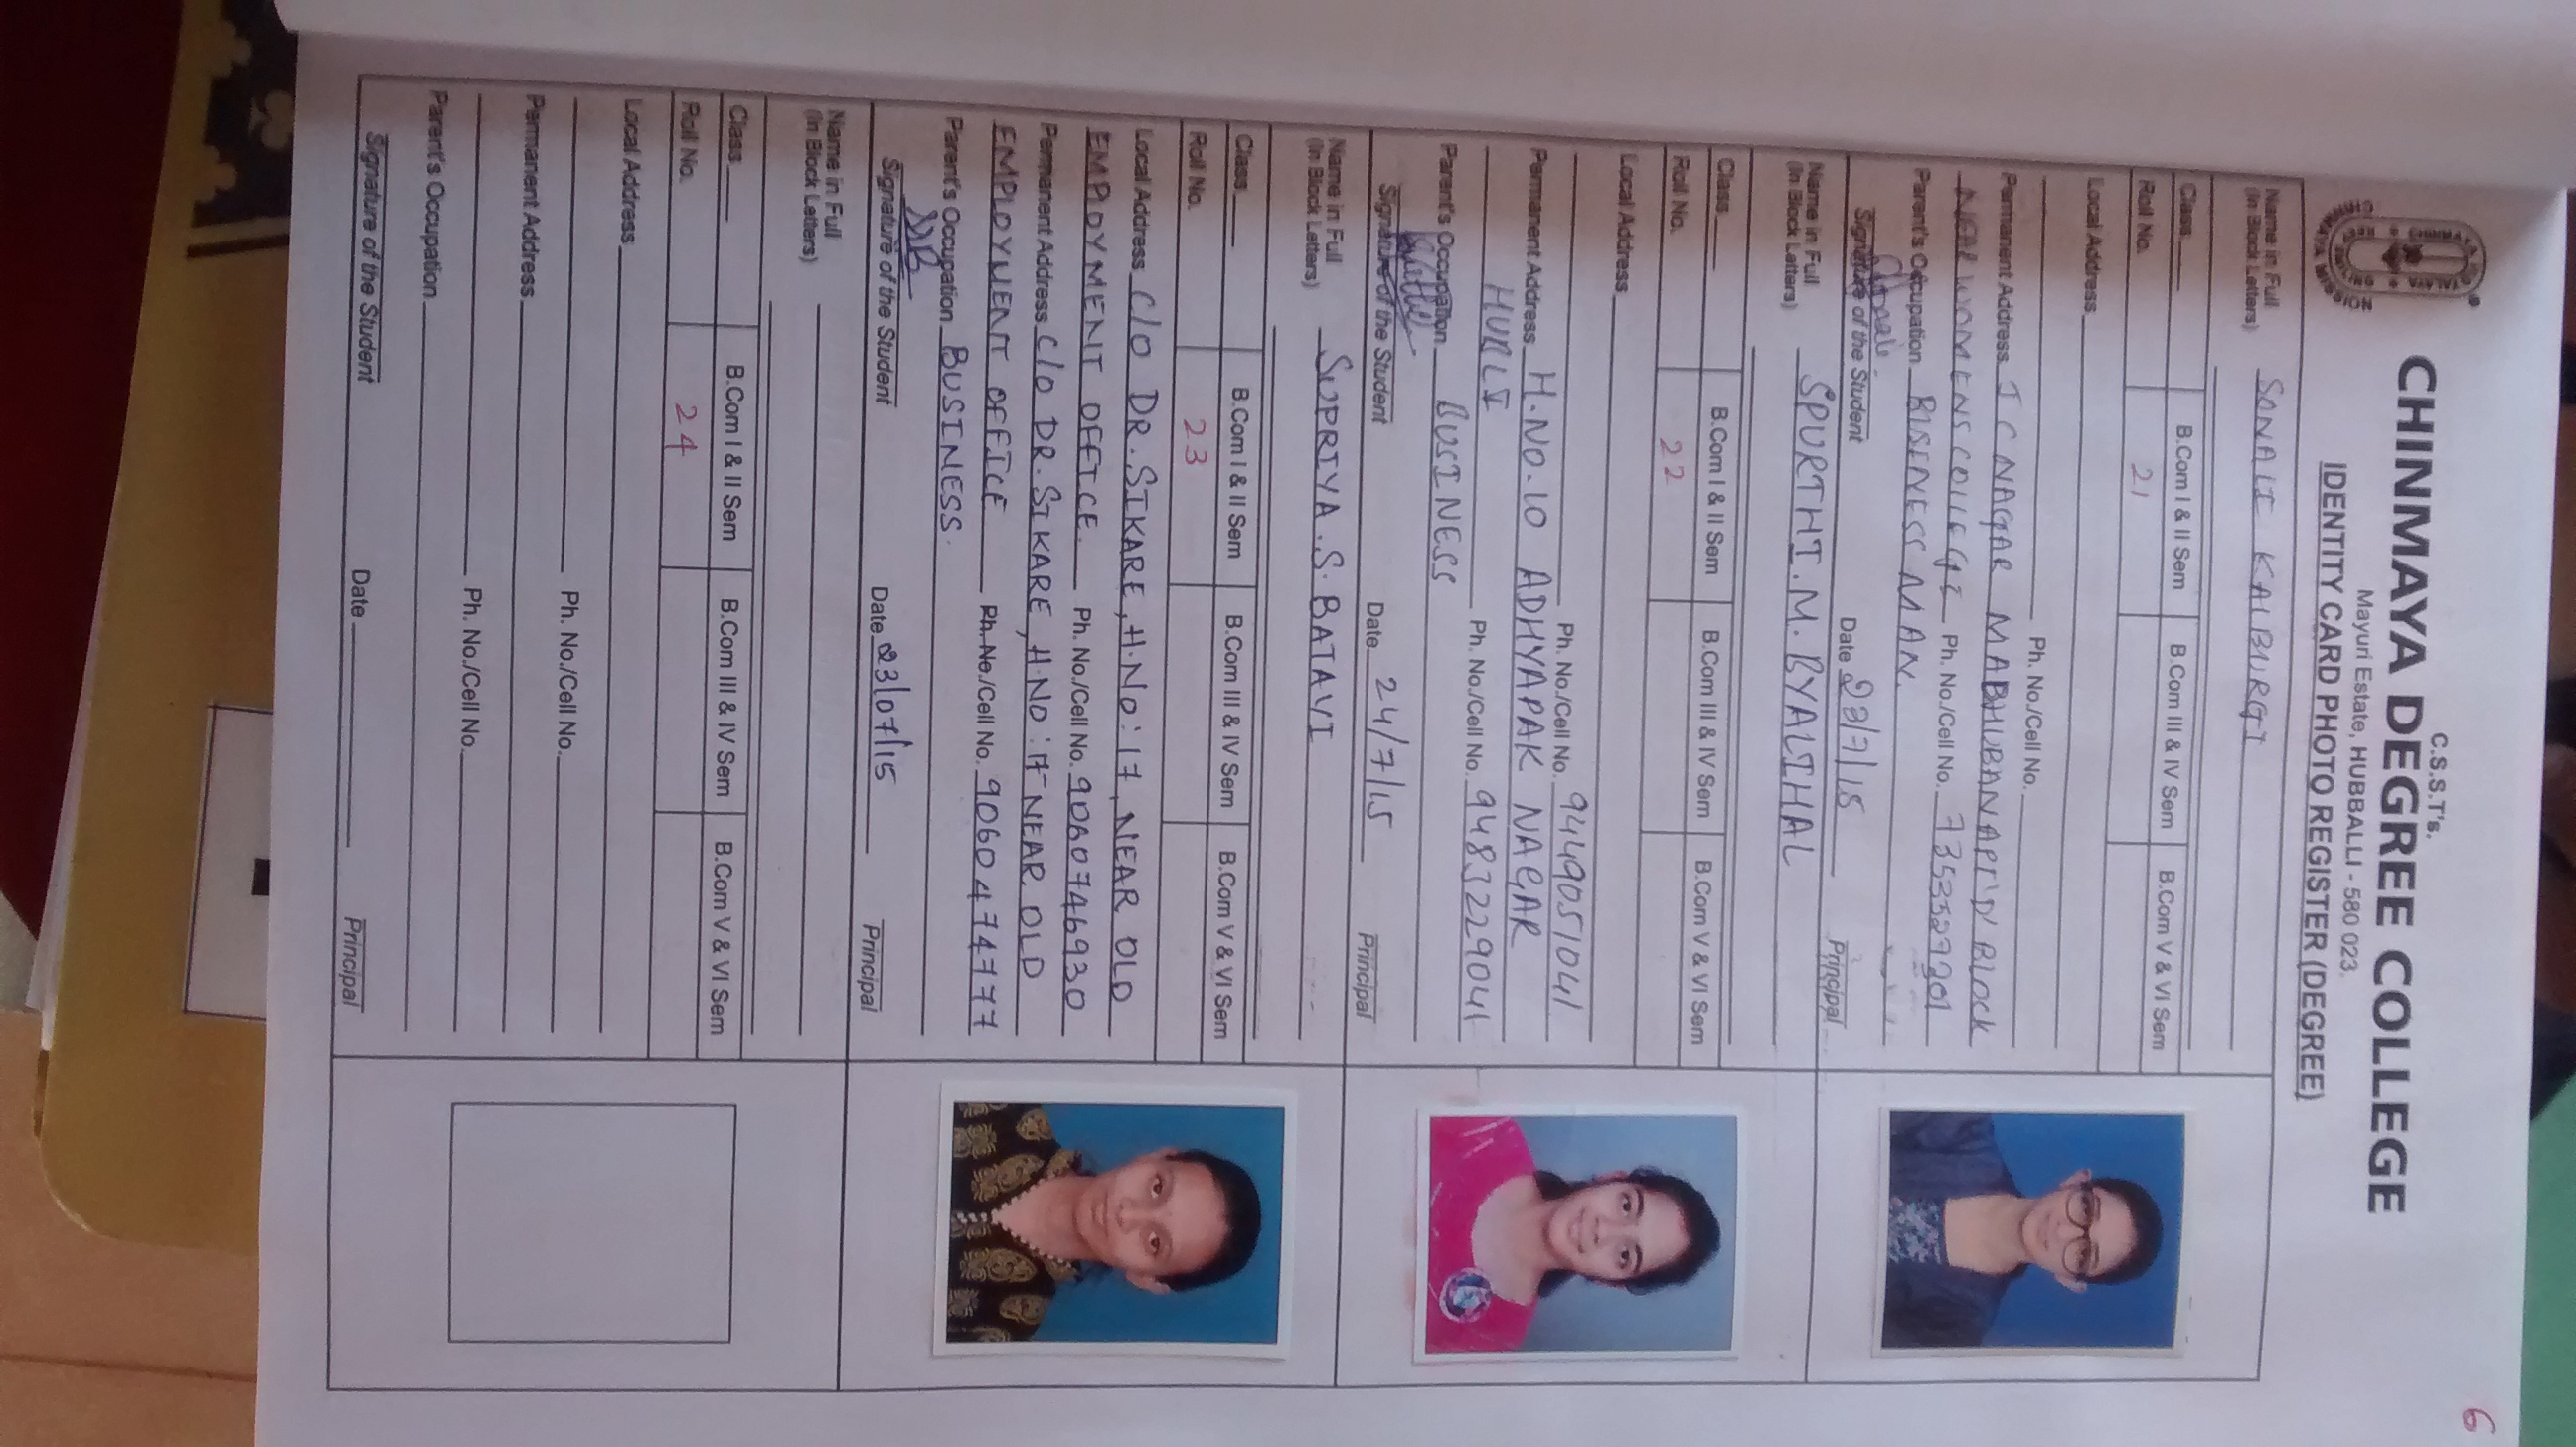 6
C.S.S.T's.
CHINMAYA DEGREE COLLEGE
Mayuri Estate, HUBBALLI - 580 023.
IDENTITY CARD PHOTO REGISTER (DEGREE)
Name in Full SONALI KALBURGI
(In Block Letters)
Class B.Com I & II Sem B.Com III & IV Sem B.Com V & VI Sem
Roll No. 21
Local Address
Ph. No./Cell No.
Permanent Address J C NAGAR MABHUBANAPI 'D' BLOCK
NEAR WOMENS COLLEGE Ph. No./Cell No.
Parent's Occupation BISENESS MAN.
Signature of the Student Date 23/7/15 Principal
Name in Full SPURTHI.M.BYALIHAL
(In Block Letters)
Class B.Com I & II Sem B.Com III & IV Sem B.Com V & VI Sem
Roll No. 22
Local Address
Ph. No./Cell No. 9449051041
Permanent Address H.NO.10 ADHYAPAK NAGAR
HUBLI Ph. No./Cell No. 9483229041
Parent's Occupation BUSINESS
Signature of the Student Date 24/7/15 Principal
Name in Full SUPRIYA.S.BATAVI
(In Block Letters)
Class B.Com I & II Sem B.Com III & IV Sem B.Com V & VI Sem
Roll No. 23
Local Address C/O DR.SIKARE, H.NO:17, NEAR OLD
EMPLOYMENT OFFICE. Ph. No./Cell No. 9060746930
Permanent Address C/O DR.SIKARE, H.NO:17 NEAR OLD
EMPLOYMENT OFFICE Ph. No./Cell No. 9060474777
Parent's Occupation BUSINESS.
Signature of the Student Date 23/07/15 Principal
Name in Full
(In Block Letters)
Class B.Com I & II Sem B.Com III & IV Sem B.Com V & VI Sem
Roll No. 24
Local Address
Ph. No./Cell No.
Permanent Address
Ph. No./Cell No.
Parent's Occupation
Signature of the Student Date Principal